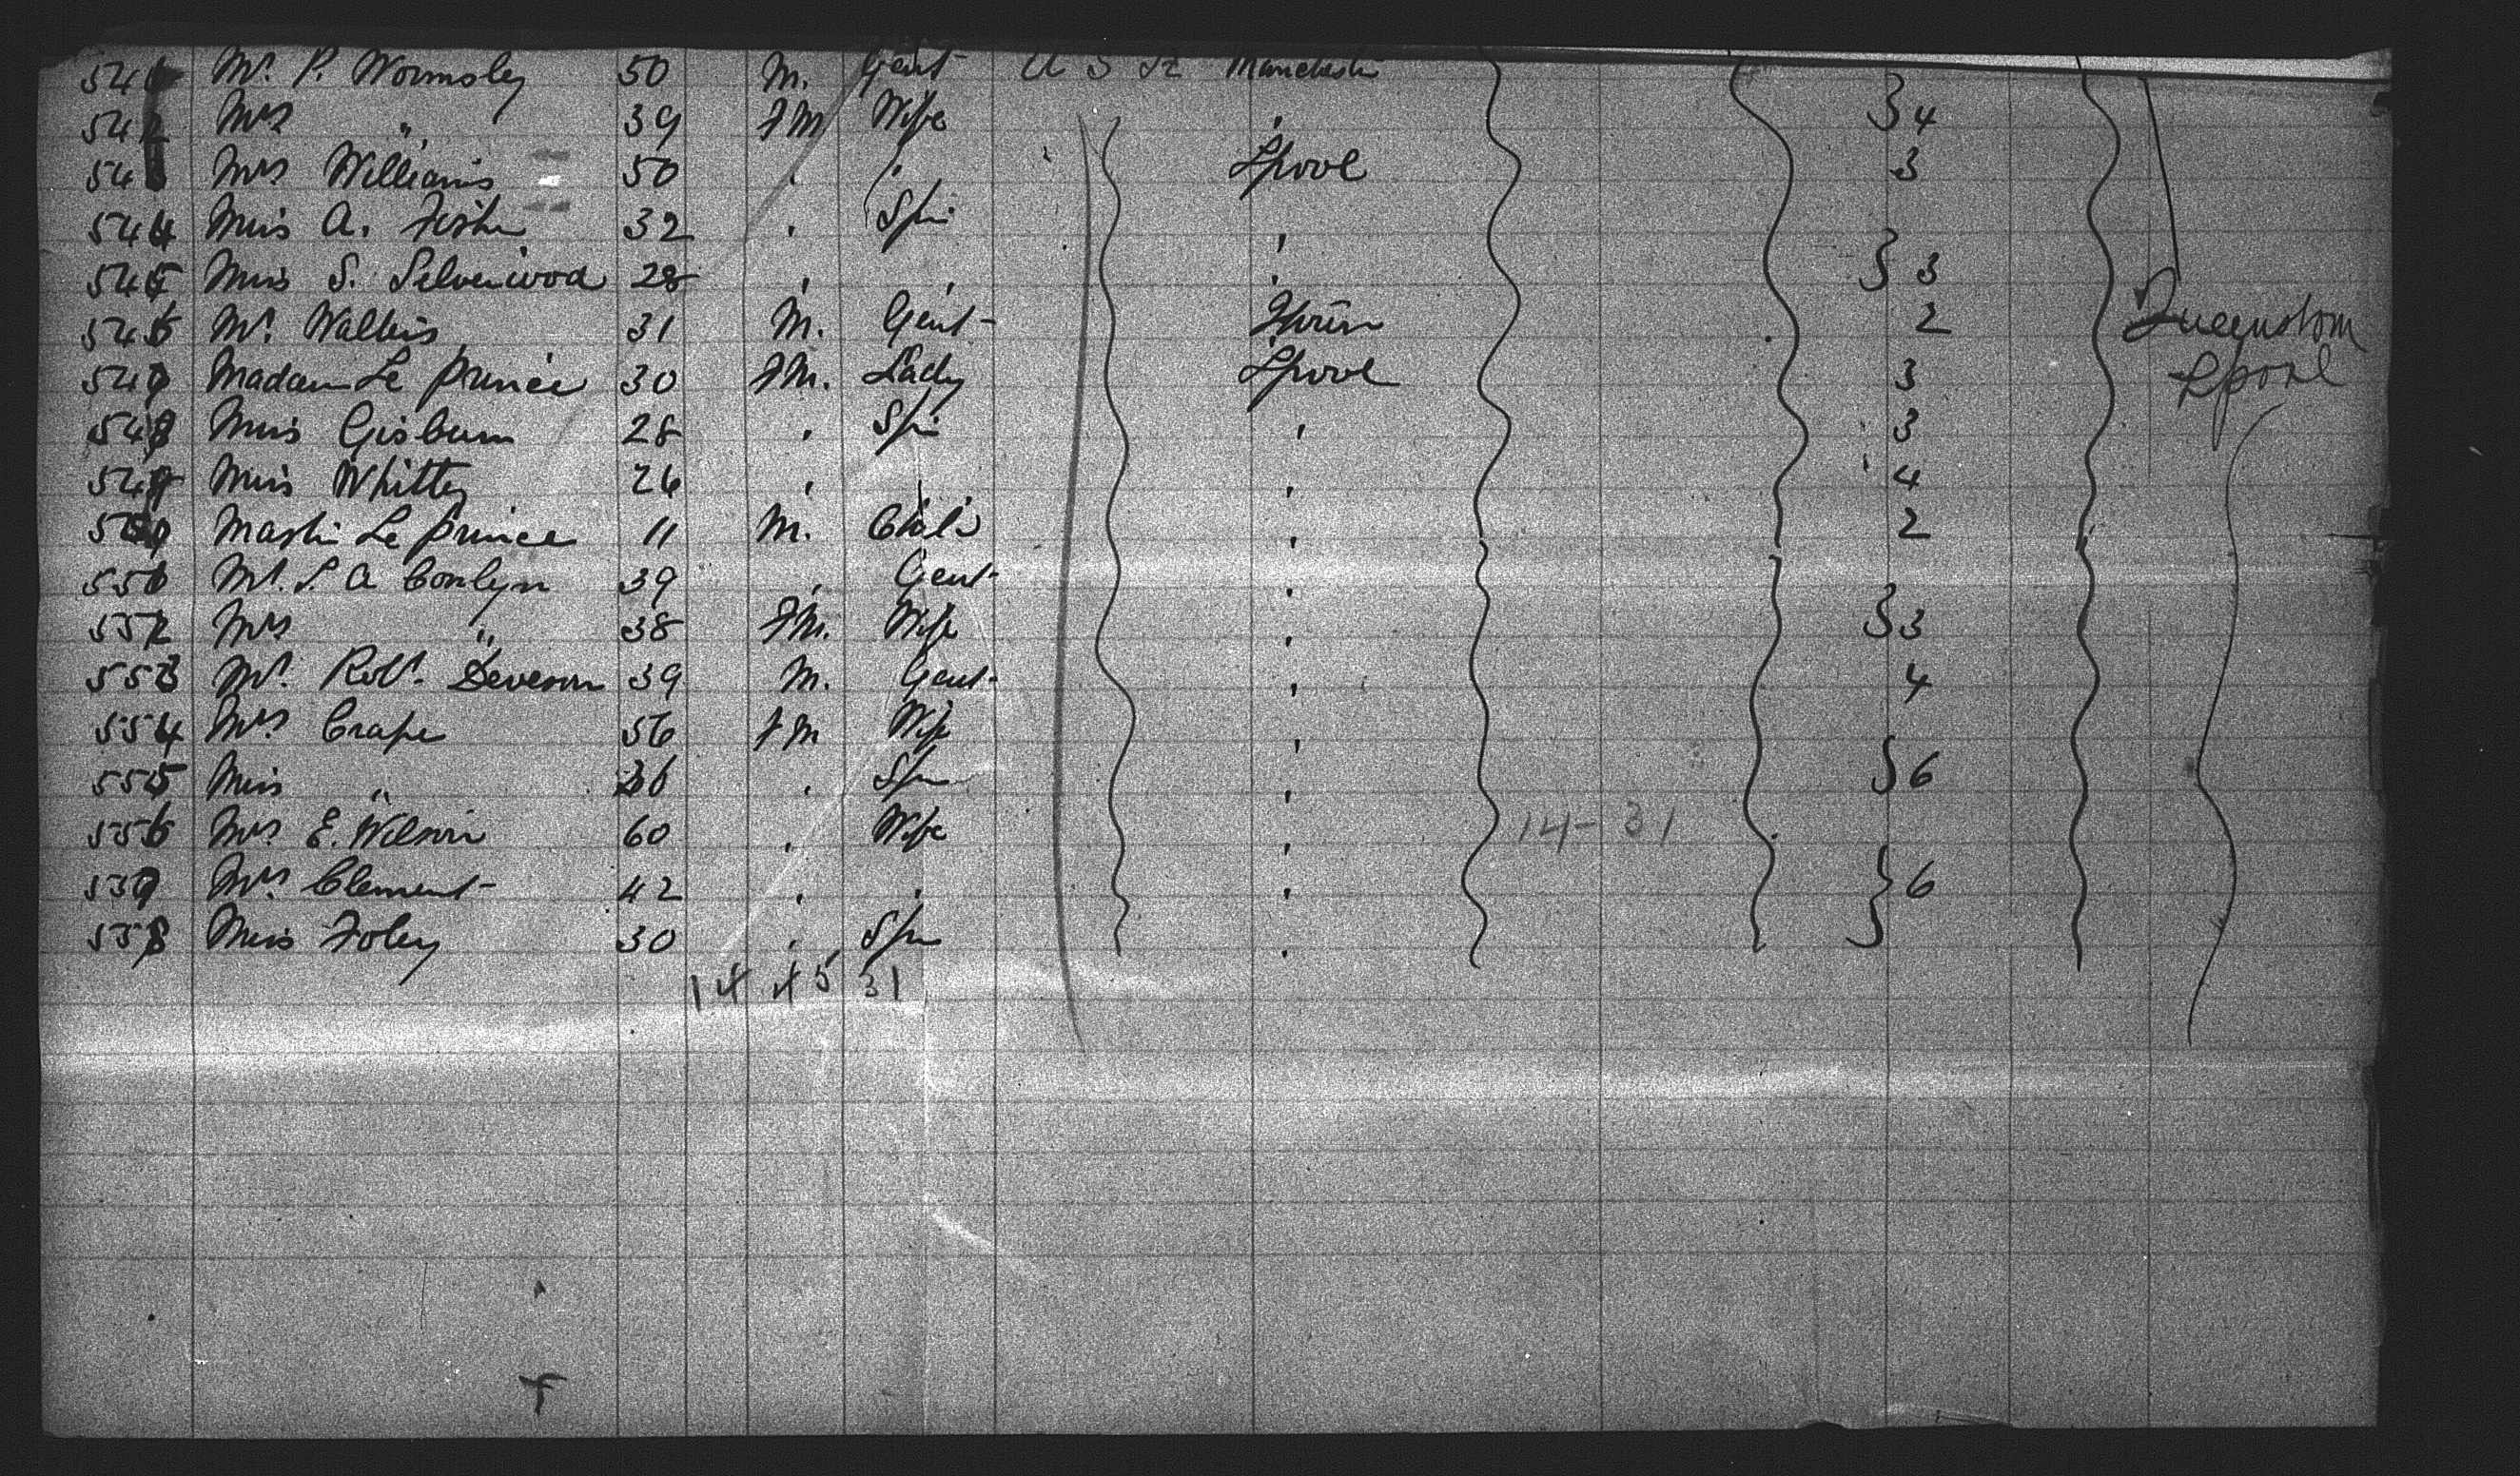 541 Mr. P. Wormsley 50 M. Gent U S A Manchester
542 Mrs " 39 FM Wife , } 4
543 Mrs Williams 50 , , Lpool 3
544 Miss A. Fisher 32 , Spin ,
545 Miss S. Silverwood 28 , , , } 3
546 Mr. Watkins 31 M. Gent 2 Queenstown
547 Madam Le Prince 30 FM. Lady Lpool 3 Lpool
548 Miss Gisburn 28 , Spin , 3
549 Miss Whitty 26 , , , 4
550 Master Le Prince 11 M. Child , 2
551 Mr. S. A Conlyn 39 , Gent ,
552 Mrs " 38 FM. Wife , } 3
553 Mr. Robt. Deveson 39 M. Gent , 4
554 Mrs Crape 56 FM Wife ,
555 Miss " 36 , Spin , } 6
556 Mrs E. Wilson 60 , Wife , 14-31
557 Mrs. Clement 42 , , , } 6
558 Miss Foley 30 , Spin ,
14 45 31